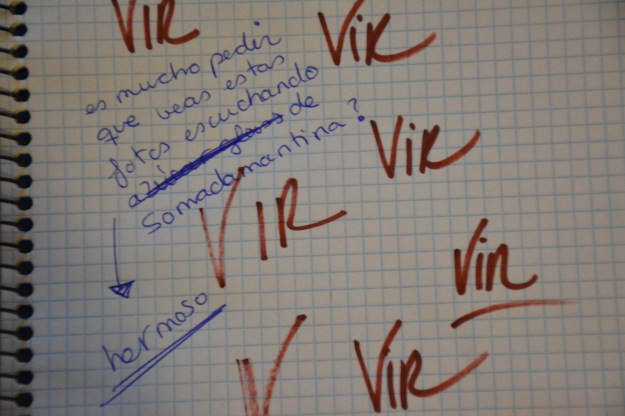 VIR
VIR
es mucho pedir
que veas estas
fotos escuchando
de
Somadamantina?
VIR
VIR
VIR
hermoso
V
VIR